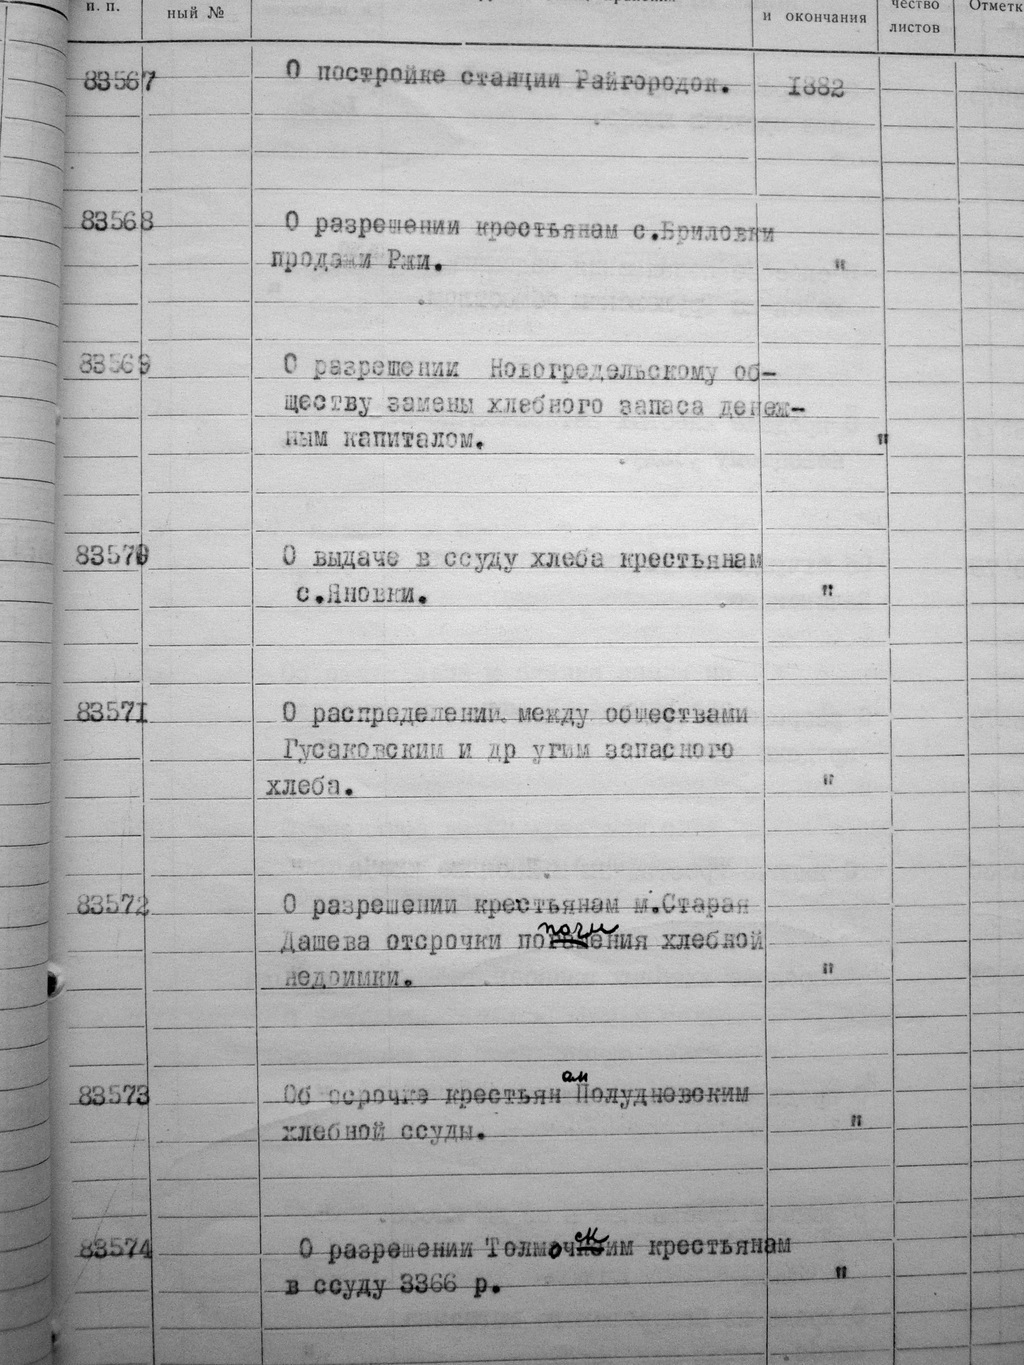 п. п.
ный №
и окончания
чество
листов
Отметк
83567 О постройке станции Райгородок. 1882
83568 О разрешении крестьянам с.Бриловки
продажи Ржи. "
83569 О разрешении Новогредельскому об-
ществу замены хлебного запаса денеж-
ным капиталом. "
83570 О выдаче в ссуду хлеба крестьянам
с.Яновки. "
83571 О распределении между обществами
Гусаковским и др угим запасного
хлеба. "
83572 О разрешении крестьянам м.Старая
Дашева отсрочки погашения хлебной
недоимки. "
83573 Об осрочке крестьянам Полудневским
хлебной ссуды. "
83574 О разрешении Толмочским крестьянам
в ссуду 3366 р. "